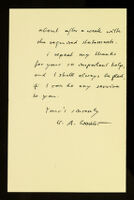 about after a week with
the required statements.
I repeat my thanks
for your so important help,
and I shall always be glad
if I can be any service
to you.
Yours sincerely